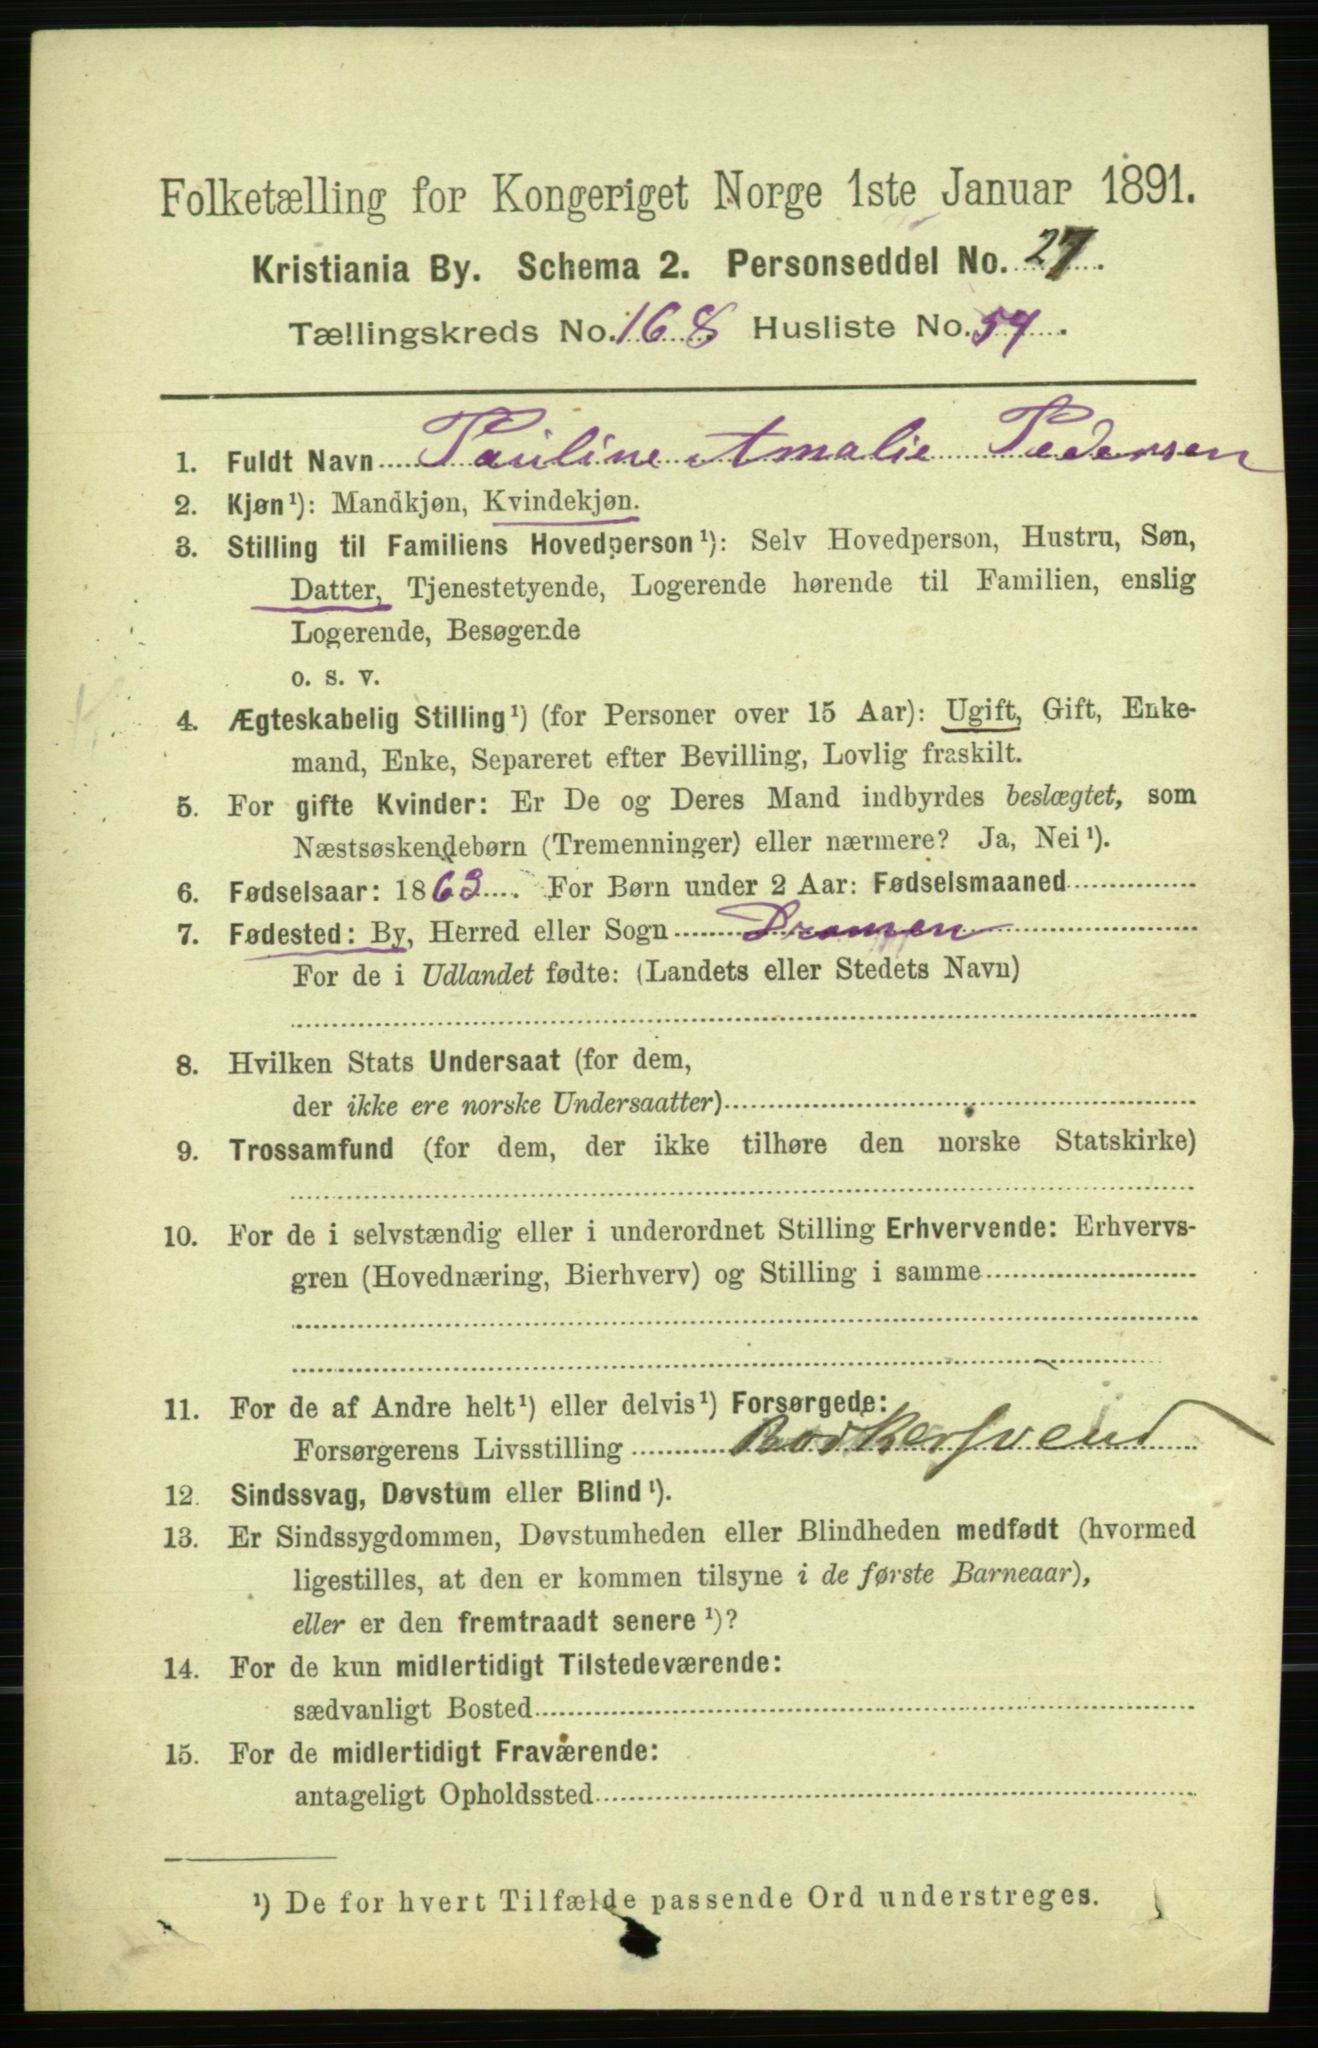 Folketælling for Kongeriget Norge 1ste Januar 1891.
Kristiania By. Schema 2. Personseddel No. 27.
Tællingskreds No. 168 Husliste No. 54.
1. Fuldt Navn Pauline Amalie Pedersen
2. Kjøn¹): Mandkjøn, Kvindekjøn.
3. Stilling til Familiens Hovedperson¹): Selv Hovedperson, Hustru, Søn,
Datter, Tjenestetyende, Logerende hørende til Familien, enslig
Logerende, Besøgende
o. s. v.
4. Ægteskabelig Stilling¹) (for Personer over 15 Aar): Ugift, Gift, Enke-
mand, Enke, Separeret efter Bevilling, Lovlig fraskilt.
5. For gifte Kvinder: Er De og Deres Mand indbyrdes beslægtet, som
Næstsøskendebørn (Tremenninger) eller nærmere? Ja, Nei¹).
6. Fødselsaar: 1863. For Børn under 2 Aar: Fødselsmaaned
7. Fødested: By, Herred eller Sogn Dramen
For de i Udlandet fødte: (Landets eller Stedets Navn)
8. Hvilken Stats Undersaat (for dem,
der ikke ere norske Undersaatter)
9. Trossamfund (for dem, der ikke tilhøre den norske Statskirke)
10. For de i selvstændig eller i underordnet Stilling Erhvervende: Erhvervs-
gren (Hovednæring, Bierhverv) og Stilling i samme
11. For de af Andre helt¹) eller delvis¹) Forsørgede:
Forsørgerens Livsstilling Bødkersvend
12. Sindssvag, Døvstum eller Blind¹).
13. Er Sindssygdommen, Døvstumheden eller Blindheden medfødt (hvormed
ligestilles, at den er kommen tilsyne i de første Barneaar),
eller er den fremtraadt senere¹)?
14. For de kun midlertidigt Tilstedeværende:
sædvanligt Bosted
15. For de midlertidigt Fraværende:
antageligt Opholdssted
¹) De for hvert Tilfælde passende Ord understreges.